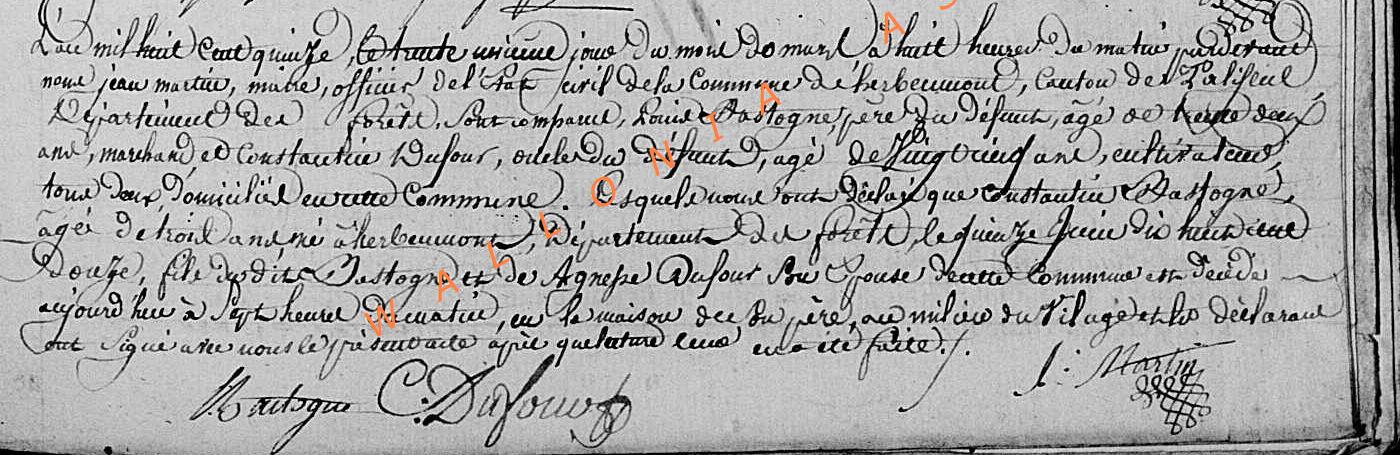 L'an mil huit cent quinze, le trente unieme jour du mois de mars, à huit heures du matin, pardevant
nous jean martin, maire, officier de l'Etat civil de la Commune de herbeumont, canton de Paliseul
Département des forêts, sont comparus, Louis Bastogne, père du défunt, âgé de trente deux
ans, marchand et Constantin Dufour, oncle du défunt, agé de vingt cinq ans, cultivateur,
tous deux domiciliés en cette Commune. Lesquels nous ont déclaré que constantin Bastogne,
âgé de trois ans né à herbeumont, Département des forêts, le quinze Juin dix huit cent
Douze, fils du dit Bastogne et de Agnesse Dufour Son Epouse de cette Commune est décédé
aujourd'hui à Sept heures du matin, en la maison de Du père, au milieu du Vilage et les déclarant
ont Signé avec nous le présent acte après que lecture leur en a été faite ./.
Bastogne C: Dufour J: Martin
WALLONIA AS